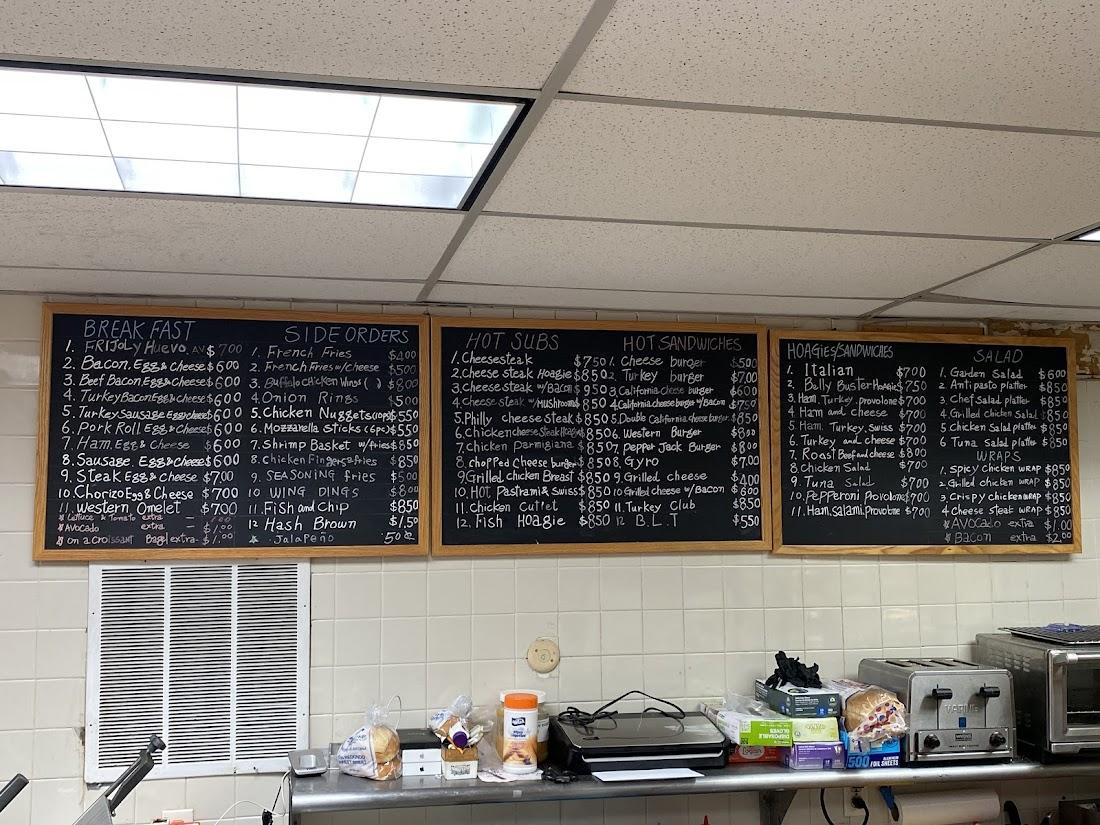 BREAKFAST
1. FRIJoLy Huevo. AV $700
2. Bacon. Egg & Cheese $600
3. Beef Bacon. Egg & Cheese $600
4. Turkey Bacon Egg & Cheese $600
5. Turkey Sausage Egg & Cheese $600
6. Pork Roll Egg & Cheese $600
7. Ham. Egg & Cheese $600
8. Sausage. Egg & Cheese $600
9. Steak Egg & Cheese $700
10. Chorizo Egg & Cheese $700
11. Western Omelet $700
Lettuce & Tomato extra
Avocado extra $1.00
on a Croissant Bagel extra $1.00
SIDE ORDERS
1. French Fries $400
2. French Fries w/cheese $500
3. Buffalo Chicken Wings ( ) $800
4. Onion Rings $500
5. Chicken Nuggets (10pc) $550
6. Mozzarella Sticks (6pc) $550
7. Shrimp Basket w/fries $850
8. Chicken Fingers & fries $850
9. SEASONING fries $500
10 WING DINGS $800
11. Fish and Chip $850
12 Hash Brown $1.50
Jalapeño .50
HOT SUBS
1. Cheesesteak $750
2. Cheese steak Hoagie $850
3. Cheese steak w/BACON $950
4. Cheese steak w/MUSHROOMS $850
5. Philly cheese steak $850
6. Chicken cheese steak Hoagie $850
7. Chicken Parmigiana $850
8. chopped cheese burger $850
9. Grilled chicken Breast $850
10. HOT Pastrami & Swiss $850
11. Chicken Cutlet $850
12. Fish Hoagie $850
HOT SANDWICHES
1. Cheese burger $500
2. Turkey burger $700
3. California cheese burger $600
4. California cheese burger w/Bacon $750
5. Double California cheese burger $850
6. Western Burger $800
7. Pepper Jack Burger $800
8. Gyro $700
9. Grilled cheese $400
10 Grilled cheese w/Bacon $600
11. Turkey Club $850
12 B.L.T $550
HOAGIES/SANDWICHES
1. Italian $700
2. Belly Buster Hoagie $750
3. Ham. Turkey. provolone $700
4. Ham and cheese $700
5. Ham. Turkey. Swiss $700
6. Turkey and cheese $700
7. Roast Beef and cheese $800
8. Chicken Salad $700
9. Tuna Salad $700
10. Pepperoni, provolone $700
11. Ham, salami, provolone $700
SALAD
1. Garden Salad $600
2. Antipasto platter $850
3. Chef Salad platter $850
4. Grilled chicken Salad $850
5. Chicken Salad platter $850
6 Tuna Salad platter $850
WRAPS
1. Spicy chicken WRAP $850
2. Grilled chicken WRAP $850
3. Crispy chicken WRAP $850
4 Cheese steak WRAP $850
AVOCADO extra $1.00
BACON extra $2.00
DISPOSABLE
GLOVES
500 FOIL SHEETS
WARING